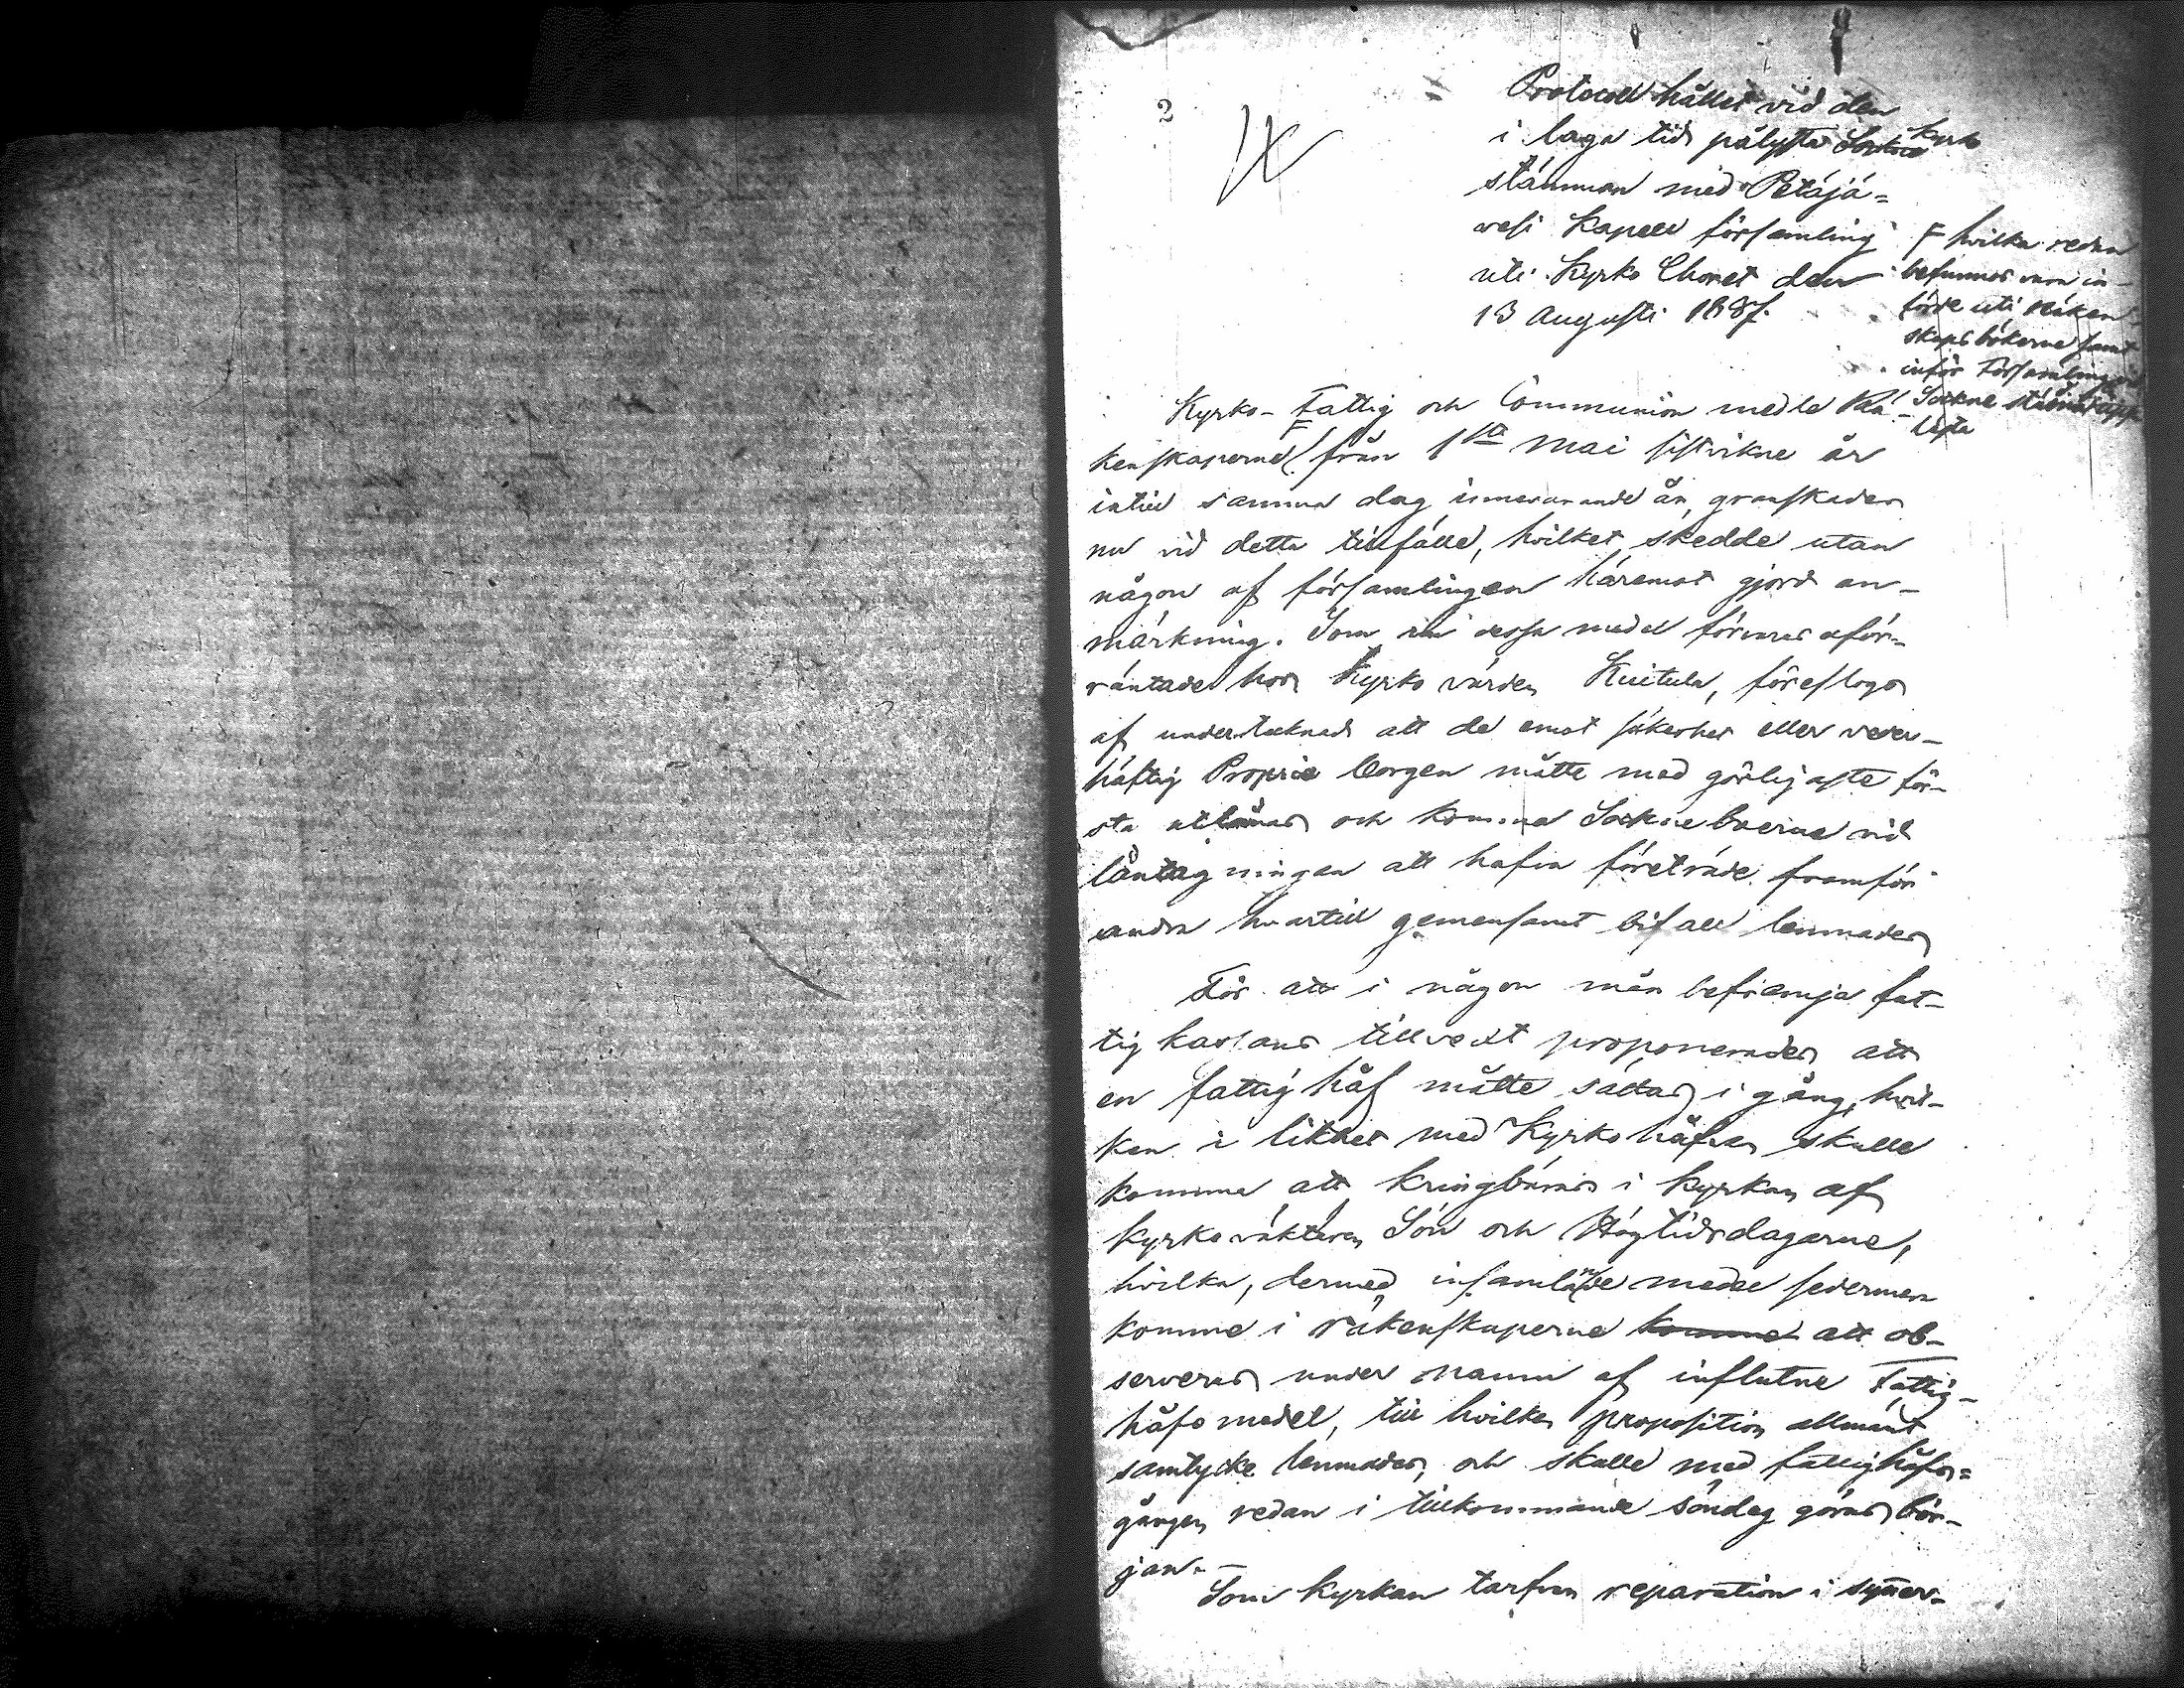 2
Protocoll hållet vid den
i laga tid pålysta Sockne Kyrko
stämman med Petäjä=
vesi Kapell församling
uti Kyrko Choret den
13 Augusti 1837.
F hvilka redan
befunnos vara in-
förde uti räken-
skapsböckerne samt
inför Församlingen
Sockne stämma upp-
läste
Kyrko- Fattig och Communion medle Rä-
kenskaperne F från 1sta Maj sistvikne år
intill samma dag innevarande år, granskades
nu vid detta tillfälle, hvilket skedde utan
någon af församlingen häremot gjord an-
märkning. Som dessa medel förvaras oför-
räntade hos Kyrko värden Kuitula, föreslogs
af undertecknad att de emot säkerhet eller veder-
häftig Proprie borgen måtte med görligaste för-
sta utlånas och komme Sockneboerne vid
låntagningen att hafva företräde framför
andra hvartill gemensamt bifall lemnades
För att i någon mån befrämja fat-
tig kassans tillvext proponerades att
en fattig håf måtte sättas i gång, hvil-
ken i likhet med Kyrko håfven skulle
komme att kringbäras i Kyrkan af
Kyrkoväktaren Sön och Högtidsdagarne,
hvilka, dermed insamlande medel sedermera
komme i räkenskaperne komme att ob-
serveras under namn af influtne Fattig-
håfs medel, till hvilken proposition allmänt
samtycke lemnades, och skulle med fattighåfs=
gången redan i tillkommande söndag göras bör-
jan.
Som Kyrkan tarfvar reparation i syner-